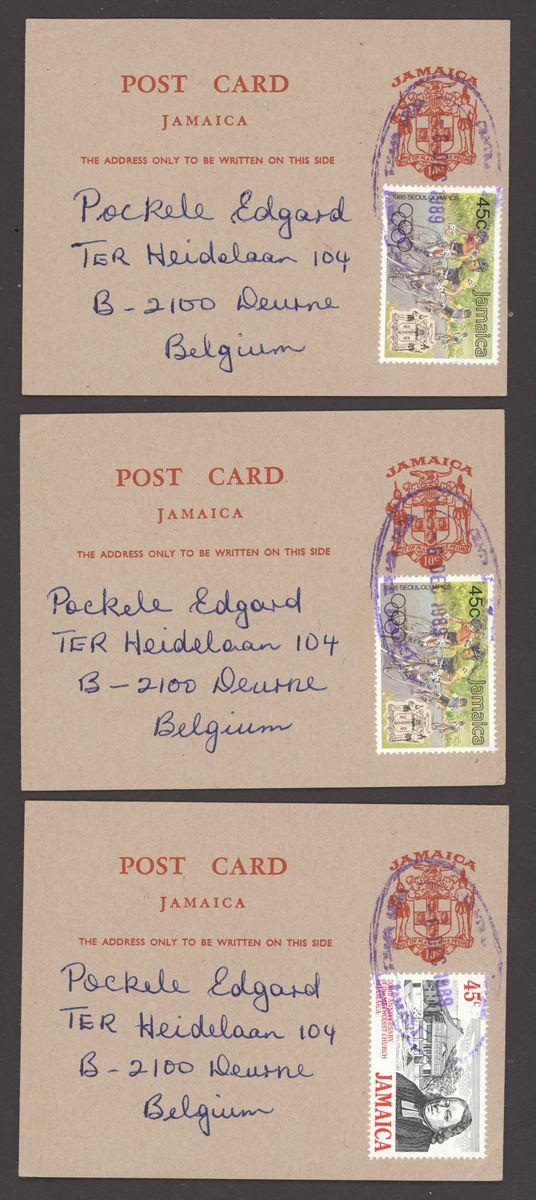 POST CARD
JAMAICA
THE ADDRESS ONLY TO BE WRITTEN ON THIS SIDE
JAMAICA
OUT OF MANY, ONE PEOPLE
10c
1989
1988 SEOUL OLYMPICS
45c
Jamaica
Pockele Edgard
TER Heidelaan 104
B-2100 Deurne
Belgium
POST CARD
JAMAICA
THE ADDRESS ONLY TO BE WRITTEN ON THIS SIDE
JAMAICA
10c
1989
1988 SEOUL OLYMPICS
45c
Jamaica
Pockele Edgard
TER Heidelaan 104
B-2100 Deurne
Belgium
POST CARD
JAMAICA
THE ADDRESS ONLY TO BE WRITTEN ON THIS SIDE
JAMAICA
OUT OF MANY, ONE PEOPLE
10c
1989
45c
ANNIVERSARY
METHODIST CHURCH
JAMAICA
JAMAICA
Pockele Edgard
TER Heidelaan 104
B-2100 Deurne
Belgium